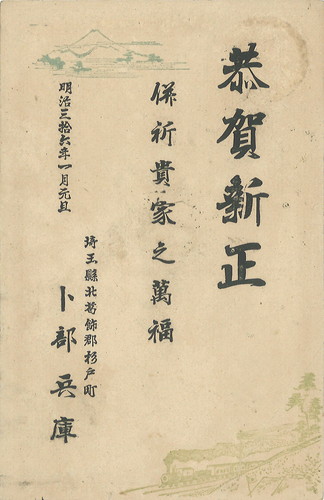 恭賀新正
併祈貴家之萬福
明治三拾六年一月元旦
埼玉縣北葛飾郡杉戸町
卜部兵庫